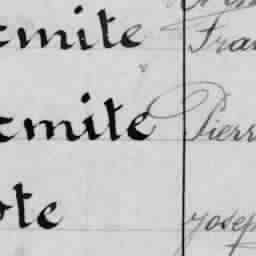 cmite Fran
cmite Pierr
ote Josep